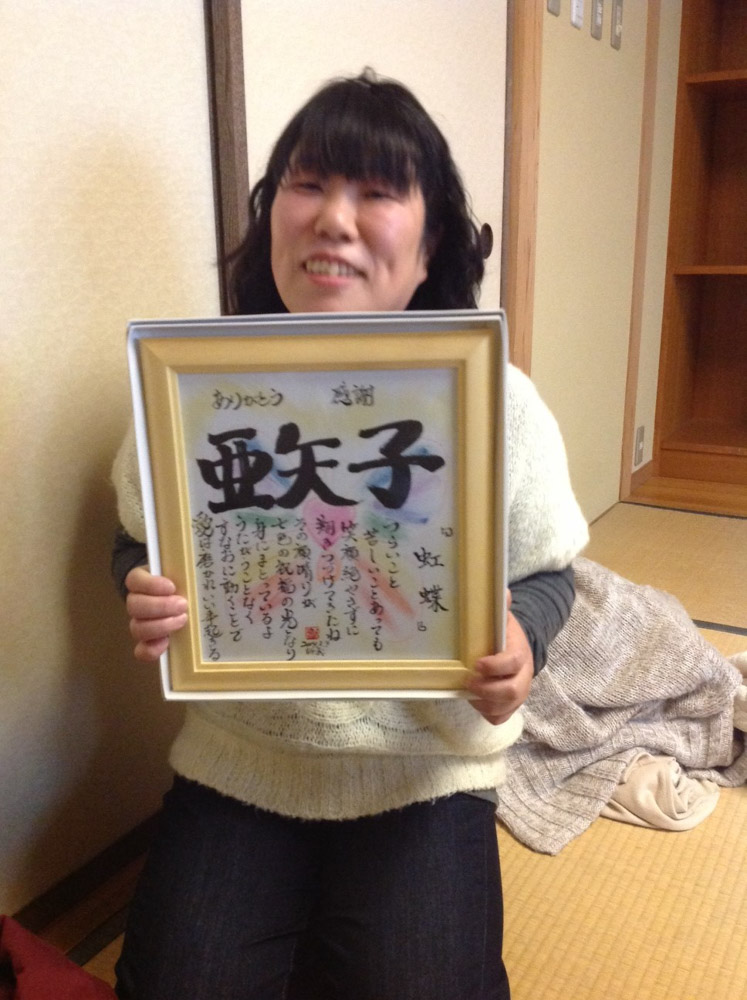 ありがとう 感謝
亜矢子
『虹蝶』
つらいこと
苦しいことあっても
笑顔絶やさずに
翔きつづけてきたね
その頑張りが
七色の祝福の光となり
身にまとっているよ
うたがうことなく
すなおに動くことで